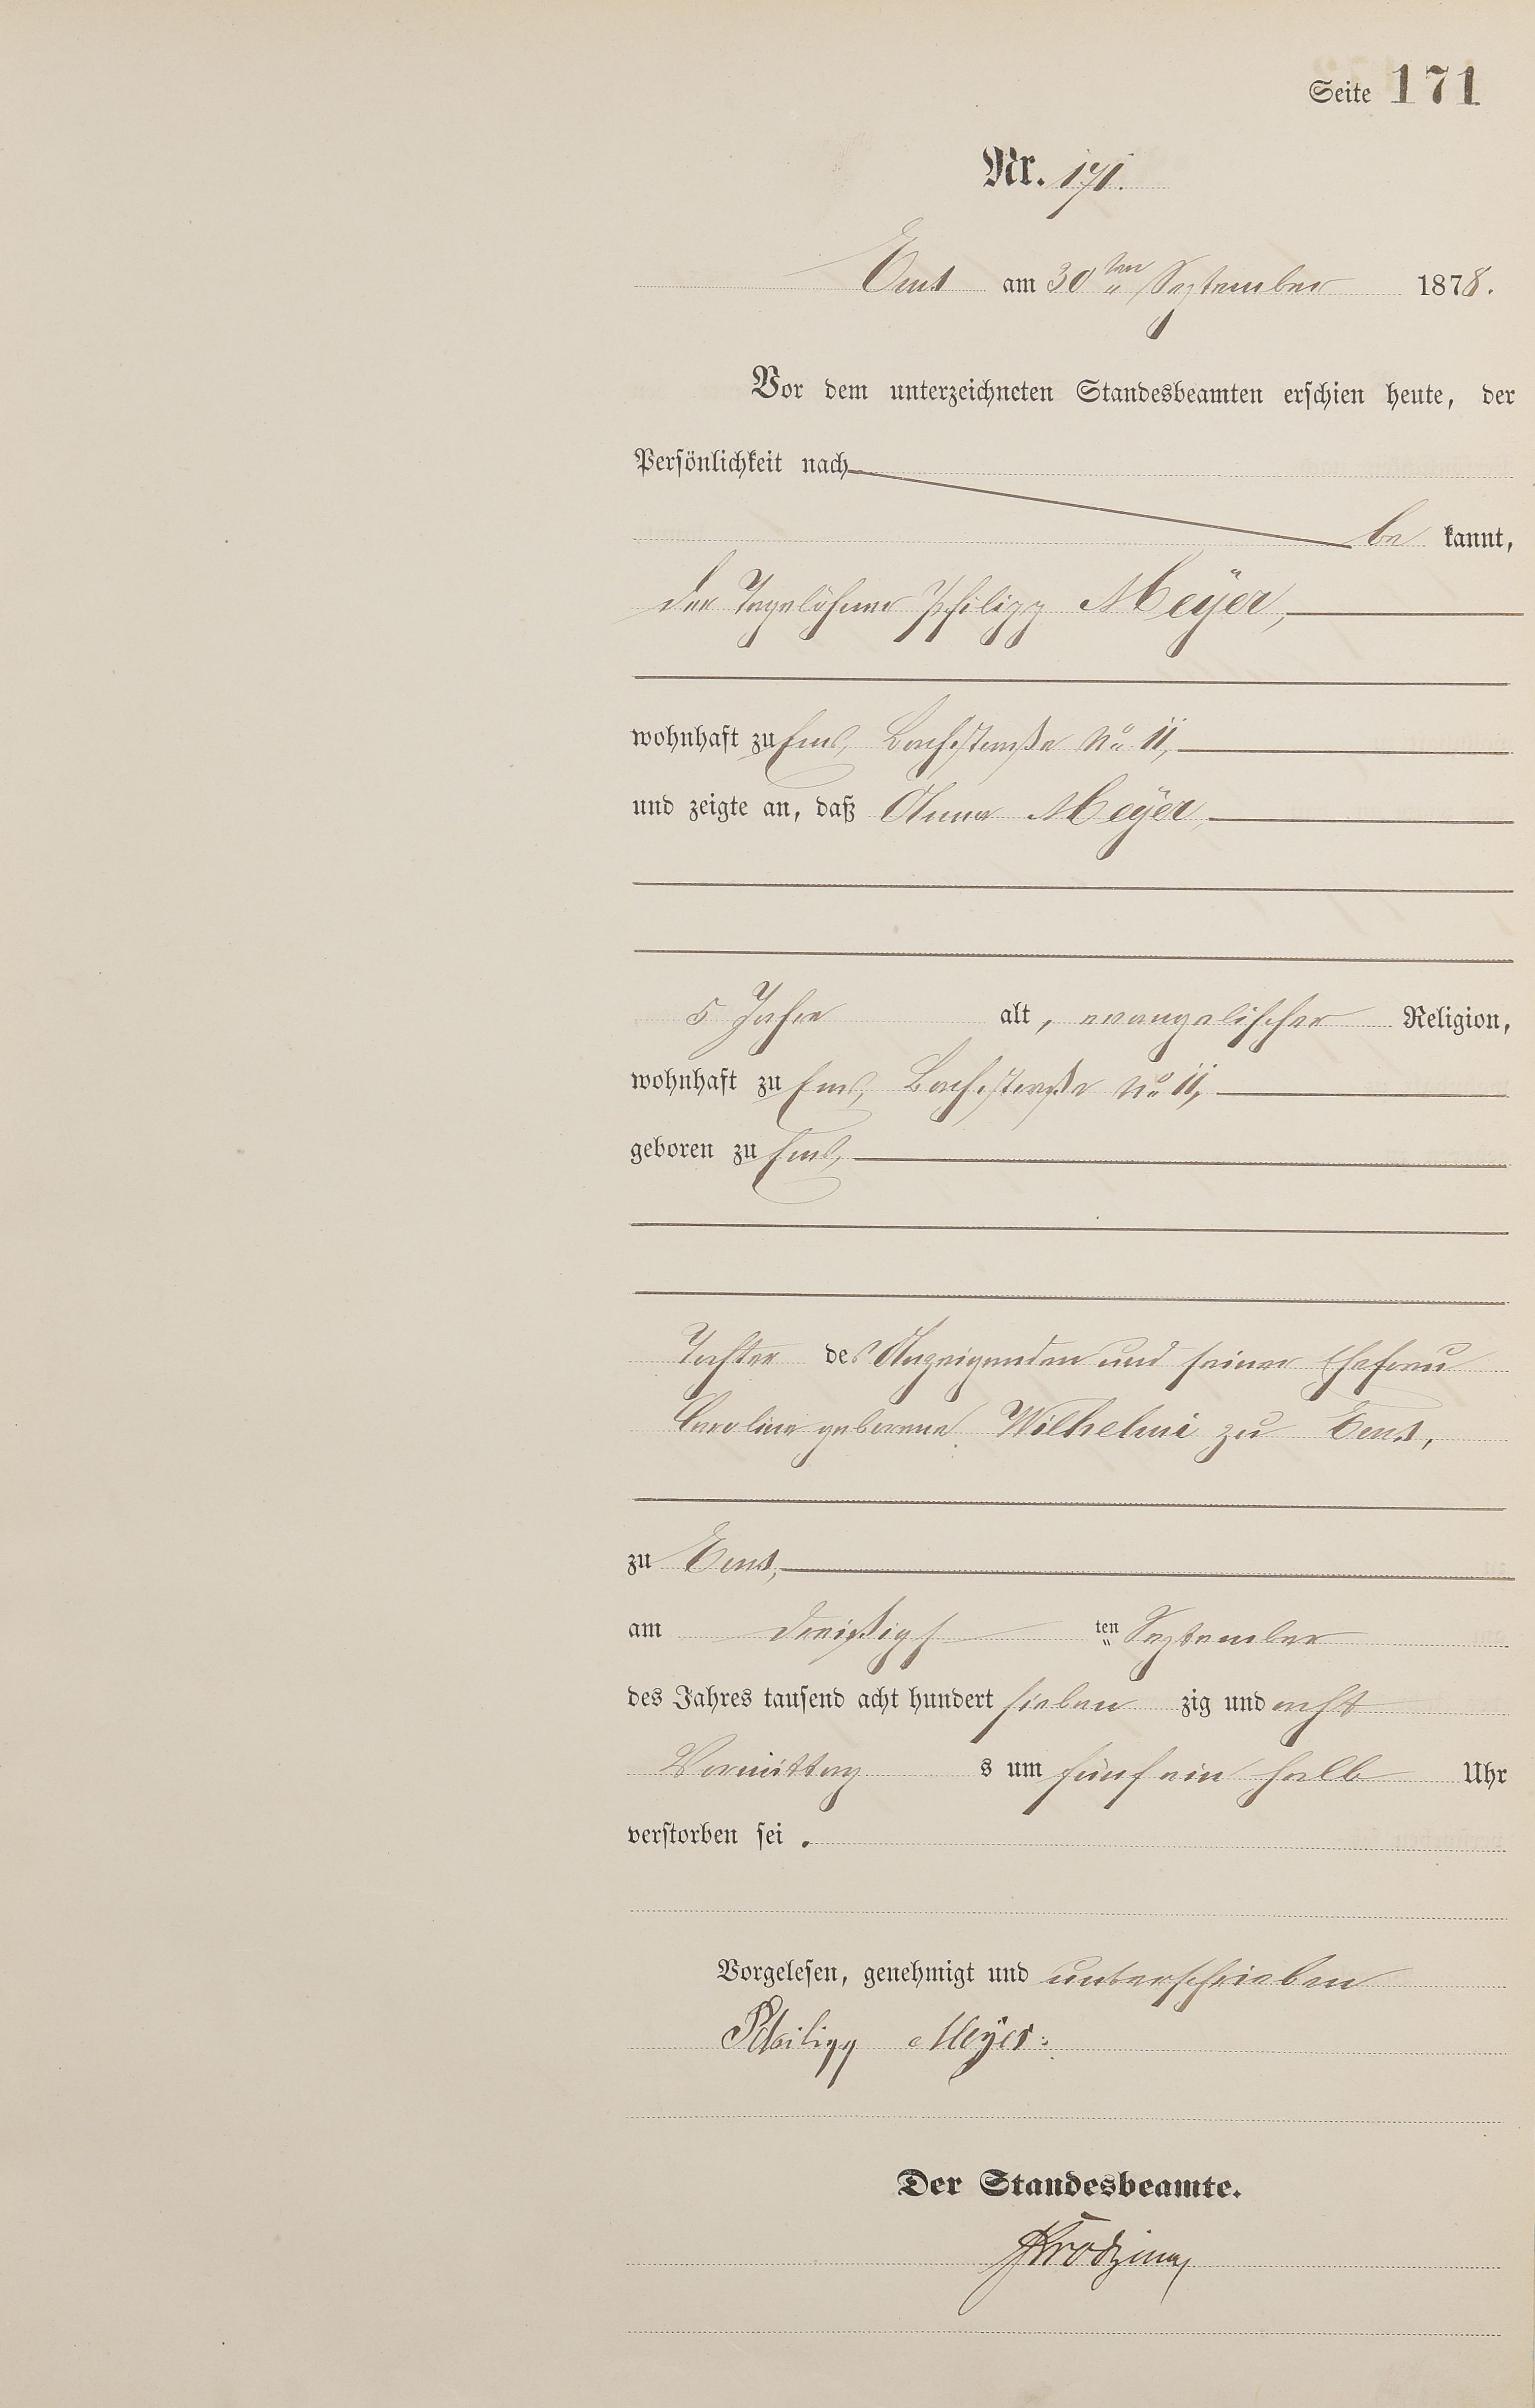 Seite 171
Nr. 171.
Ems am 30ten September 1878.
Vor dem unterzeichneten Standesbeamten erschien heute, der
Persönlichkeit nach
be kannt,
der Tagelöhner Philipp Meÿer,
wohnhaft zu Ems, Bachstraße No 11,
und zeigte an, daß Anna Meÿer,
5 Jahre alt, evangelischer Religion,
wohnhaft zu Ems, Bachstraße No 11,
geboren zu Ems,
Tochter des Anzeigenden und seiner Ehefrau
Caroline geborene Wilhelmi zu Ems,
zu Ems,
am dreißigs ten September
des Jahres tausend acht hundert sieben zig und acht
Vormittag s um fünf ein halb Uhr
verstorben sei .
Vorgelesen, genehmigt und unterschrieben
Philipp Meÿer.
Der Standesbeamte.